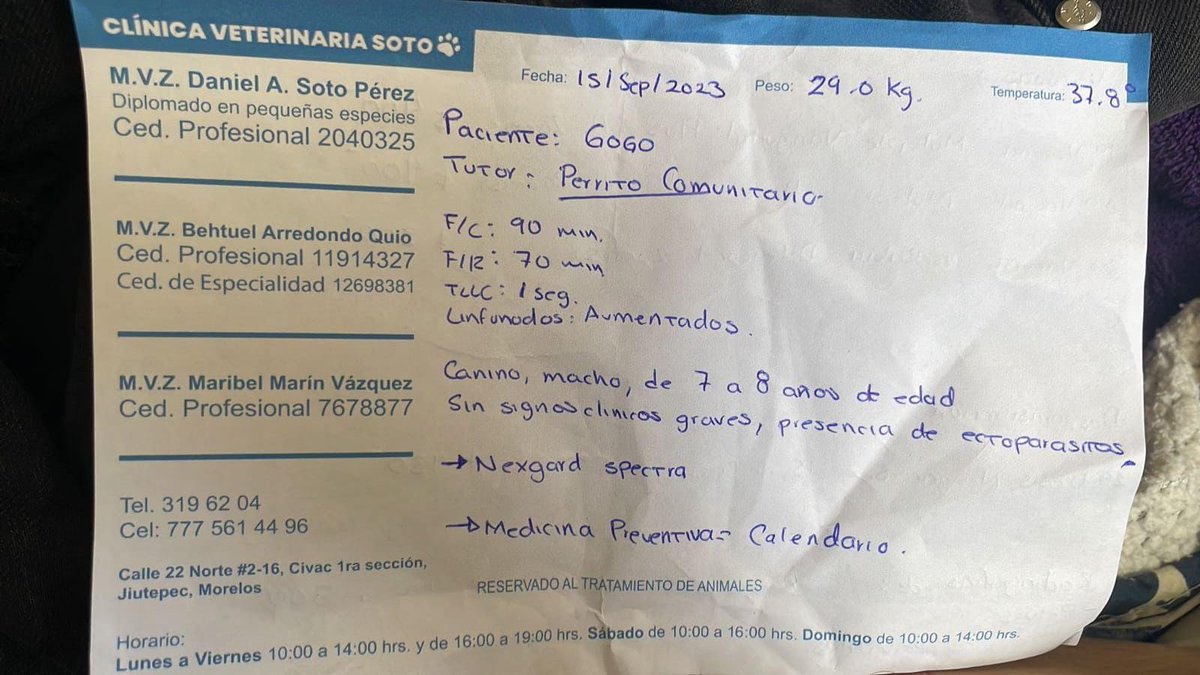 CLÍNICA VETERINARIA SOTO
M.V.Z. Daniel A. Soto Pérez
Diplomado en pequeñas especies
Ced. Profesional 2040325
M.V.Z. Behtuel Arredondo Quio
Ced. Profesional 11914327
Ced. de Especialidad 12698381
M.V.Z. Maribel Marín Vázquez
Ced. Profesional 7678877
Tel. 319 62 04
Cel: 777 561 44 96
Calle 22 Norte #2-16, Civac 1ra sección,
Jiutepec, Morelos
Fecha: 15/Sep/2023 Peso: 29.0 Kg. Temperatura: 37.8°
Paciente: GOGO
Tutor: Perrito Comunitario
F/C: 90 min.
F/R: 70 min
TLLC: 1 seg.
Linfonodos: Aumentados.
Canino, macho, de 7 a 8 años de edad
Sin signos clinicos graves, presencia de ectoparasitos.
→ Nexgard spectra
→ Medicina Preventiva - Calendario.
RESERVADO AL TRATAMIENTO DE ANIMALES
Horario:
Lunes a Viernes 10:00 a 14:00 hrs. y de 16:00 a 19:00 hrs. Sábado de 10:00 a 16:00 hrs. Domingo de 10:00 a 14:00 hrs.